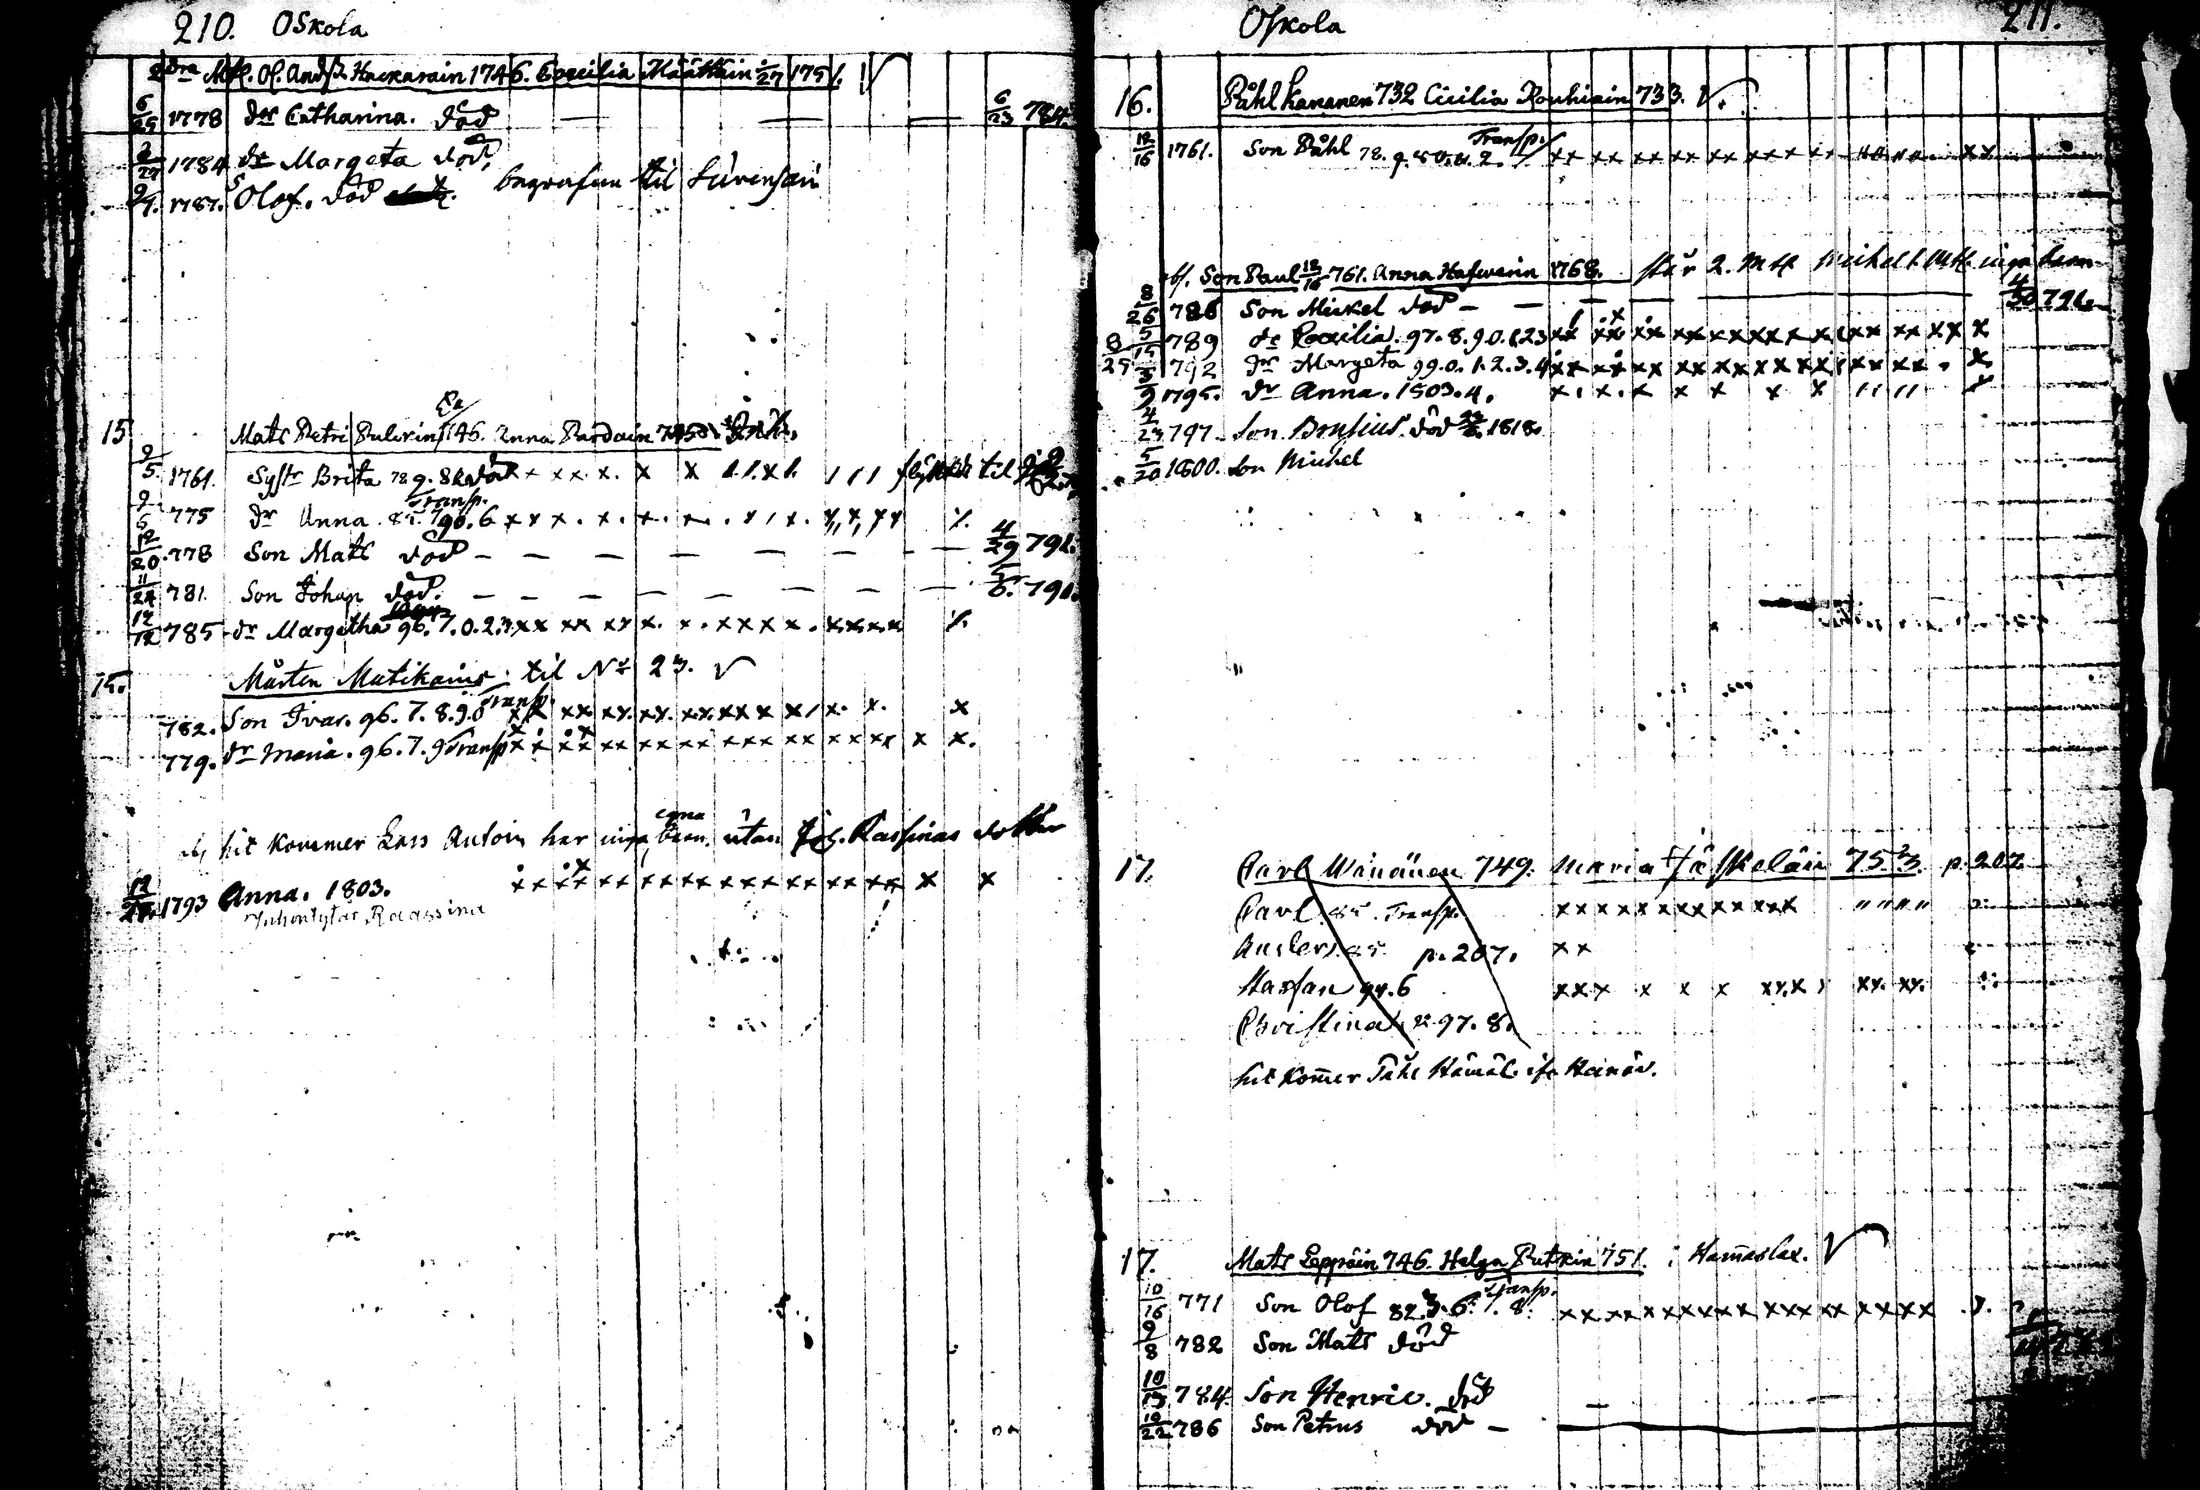 210. Oskola
2dra Mtl. Ol. Andss. Hackarain 1746. Cecilia Määttäin 1/27 1751.
6/25 1778 dr Catharina. död — — — 6/23 784.
2/27 1784 dr Margeta död,
9/7. 1787. S Olof. död begrafven til Libensari
15 Mats Petri Pulkin 746. Anna Pardain
2/5. 1761. Systr Brita 78. 9. död x x x x. x x flyttat til
9/6 775 dr Anna Transp. 90. 6 x x x. x. x. x.
12/20. 778 Son Mats död — — — — — — — 4/29 791.
11/24 781 Son Johan död. — — — — — — — 5/6. 791.
12/12 785 dr Margetha 96. 7. 0. 2. 3. xx xx xx x. x. xxx x. x.x.x.x
15. Mårten Matikains til No 23.
782. Son Ivar. 96. 7. 8. 9. 0 Transp. xx xx. xx. xx. xx. xxx x x. x. x
779. dr Maria. 96. 7. 9 Transp xx xx xx xx xx xxx xx xx xx x x.
hit kommer Lars Autoin har inga egna barn, utan Joh. Rassinas dotter
12/27. 1793 Anna. 1803. xx xx xx xx xx xx xx xx xx x x
Juhontytär Raassina
Oskola 211.
16. Påhl Kananen 732 Cicilia Rouhiain 733.
12/16 1761. Son Påhl 78. 9. 80. 81. 2. Transp. xx xx xx xx xx xxx xx xx
bf. Son Paul 12/16 761. Anna Hafwerin 1768. står 2. Mtl Michel l. Mtl. inga barn
8/26 786 Son Mickel död — — — — 4/30 791.
5/15 789 dr Cecilia. 97. 8. 9. 0. 1. 2 3 xx xx xx xx xx xx xx xx xx xx x
8/25 792 dr Margeta 99. 0. 1. 2. 3. 4 xx xx xx xx xx xx xx xx xx . x.
3/9 1795. dr Anna. 1803. 4. x. x. x x x x x x
4/23 797 Son Brusius. död 1818.
5/20 1800. Son Michel
17. Carl Wänänen 749. Maria Jäskeläin 753. p. 207.
Carl 85. Transp. x x x x x x x x x x x x
Anders. 85. p. 207. x x
Staffan 94. 6 xxx x x x xx.x xx. xx.
Christina 97. 8.
hit kommer Påhl
17. Mats Leppäin 746. Helga Putkin 751. Hamaslax.
10/16 771 Son Olof 82. 3. 6. 7. 8. Transp. xx xx xx xx xx xxx xx xxxx
9/8 782 Son Mats död
10/13 784. Son Henric. död
10/22 786 Son Petrus död —